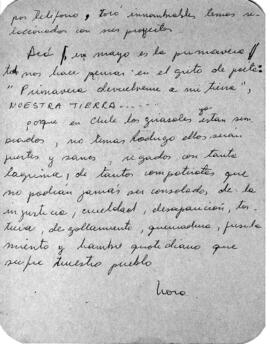 por teléfono, tocó innombrables temas re-
laccionados con sus proyectos
Acá, en mayo es la primavera
nos hace pensar en el grito de poeta:
"Primavera devuélveme a mi tierra",
NUESTRA TIERRA.....
porque en Chile los girasoles ya están sem-
brados, no temas hoy serán
fuertes y sanos, regados con tanta
lágrima, de tantos compatriotas que
no podrían jamás ser consolado, de la
injusticia, crueldad, desaparición, tor-
tura, degollamiento, quemadura, fusila
miento y hambre quotidiano que
sufre nuestro pueblo
Nora